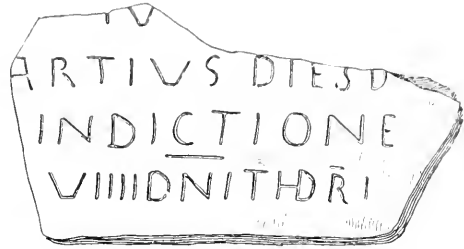 ARTIVS DIES D
INDICTIONE
VIIIIDNITHDR̄I